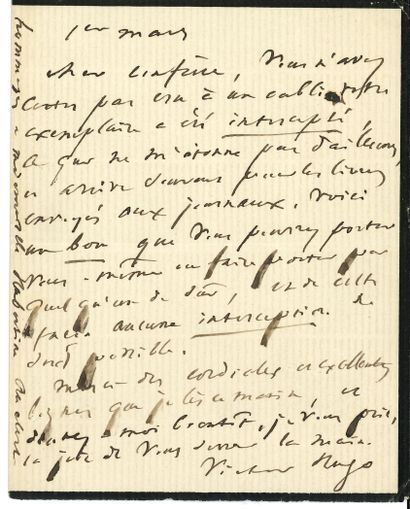 1er mars
cher confrère, Vous n'avez
certes pas cru à un oubli. Votre
exemplaire a été intercepté,
ce qui ne m'étonne pas d'ailleurs,
et arrive souvent pour les livres
envoyés aux journaux. Voici
un bon que Vous pourrez porter
Vous-même ou faire porter par
quelqu'un de sûr, et de cette
façon aucune interception ne
sera possible.
Merci des cordiales et excellentes
lignes que je lis ce matin, et
donnez-moi bientôt, je Vous prie,
la joie de Vous serrer la main.
Victor Hugo
hommage à